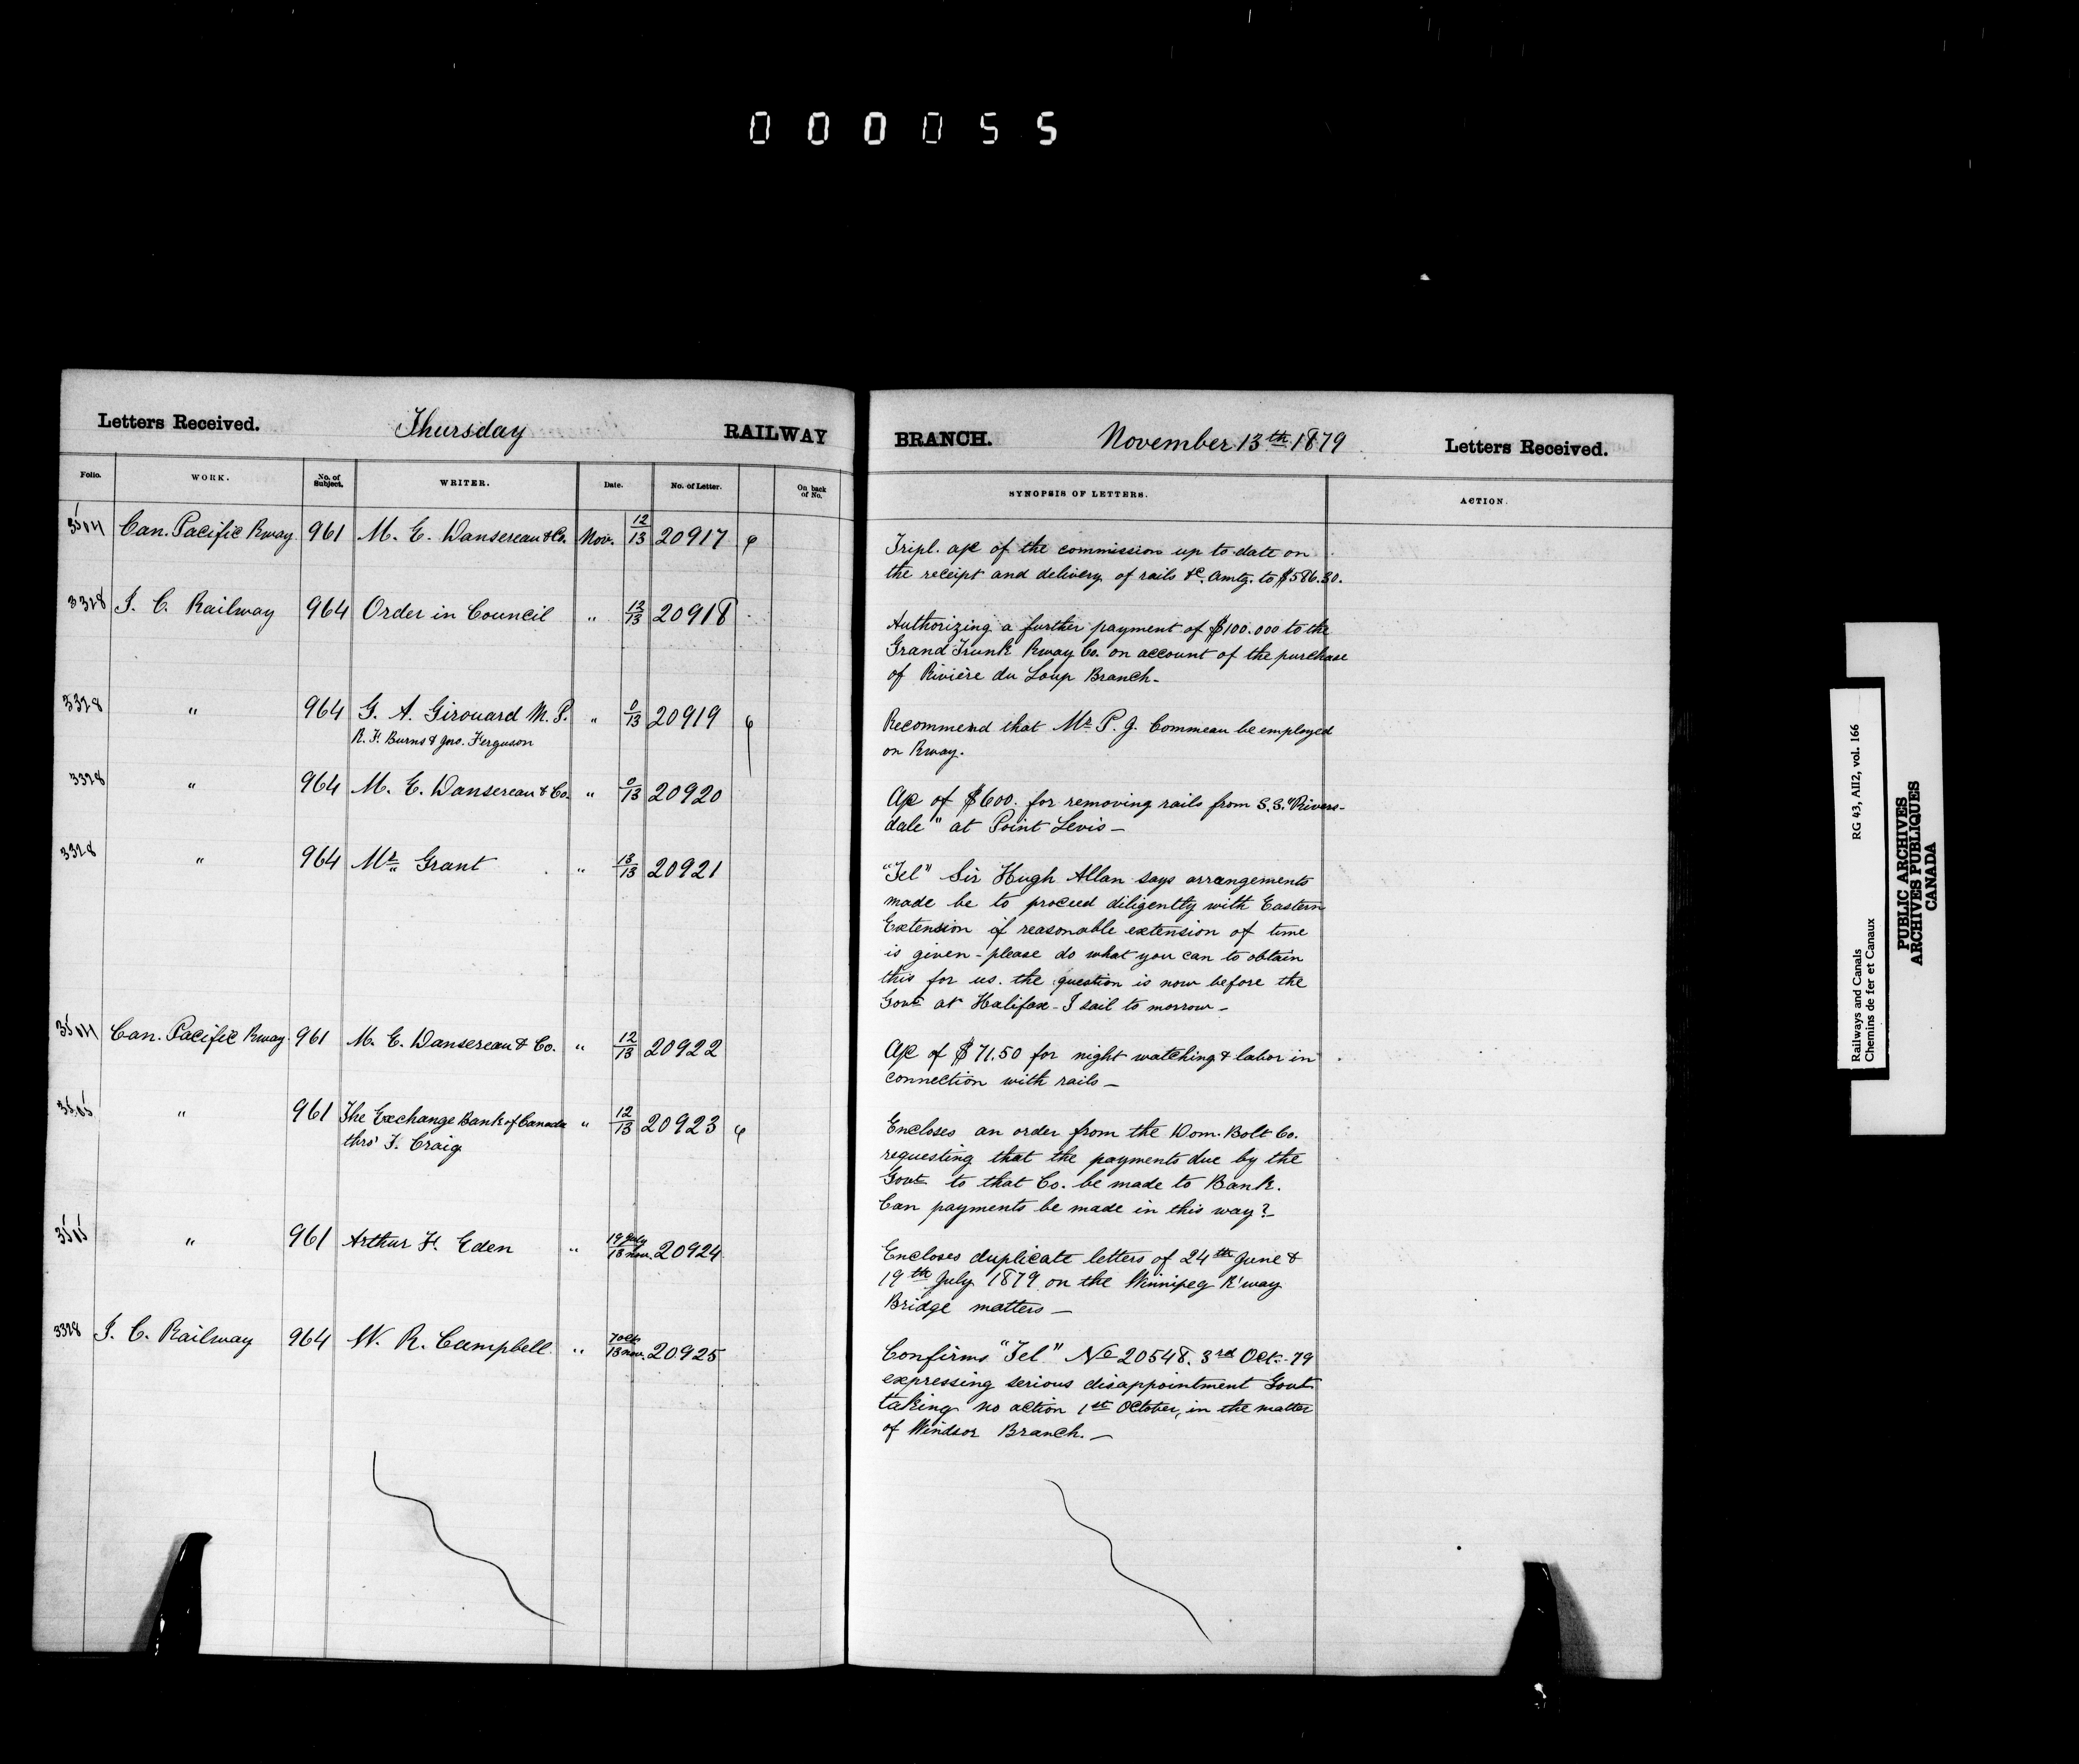 000055
Letters Received. Thursday RAILWAY
BRANCH. November 13th 1879 Letters Received.
Folio. WORK. No. of Subject. WRITER. Date. No. of Letter. On back of No.
SYNOPSIS OF LETTERS. ACTION.
Can. Pacific Rway 961 M. E. Dansereau & Co. Nov. 12/13 20917
Tripl. a/c of the commission up to date on
the receipt and delivery of rails &c. amtg. to $586.30.
3328 I. C. Railway 964 Order in Council " 12/13 20918
Authorizing a further payment of $100.000 to the
Grand Trunk Rway Co. on account of the purchase
of Rivière du Loup Branch-
3328 " 964 G. A. Girouard M. P. " 0/13 20919
R. F. Burns & Jno. Ferguson
Recommend that Mr. P. J. Commeau be employed
on Rway.
3328 " 964 M. E. Dansereau & Co. " 0/13 20920
A/c of $600. for removing rails from S.S. "Rivers-
dale" at Point Levis -
3328 " 964 Mr. Grant " 13/13 20921
"Tel" Sir Hugh Allan says arrangements
made be to proceed diligently with Eastern
Extension if reasonable extension of time
is given - please do what you can to obtain
this for us. the question is now before the
Govt at Halifax - I sail to morrow -
Can. Pacific Rway 961 M. E. Dansereau & Co. " 12/13 20922
A/c of $71.50 for night watching & labor in
connection with rails -
" 961 The Exchange Bank of Canada " 12/13 20923
thro' F. Craig
Encloses an order from the Dom. Bolt Co.
requesting that the payments due by the
Govt to that Co. be made to Bank.
Can payments be made in this way? -
" 961 Arthur F. Eden " 19 July/13 nov. 20924
Encloses duplicate letters of 24th June &
19th July 1879 on the Winnipeg R'way
Bridge matters -
3328 I. C. Railway 964 W. R. Campbell " 7 Oct/13 nov. 20925
Confirms "Tel" No 20548. 3rd Oct. 79
expressing serious disappointment Govt
taking no action 1st October, in the matter
of Windsor Branch. -
Railways and Canals RG 43, AII2, vol. 166
Chemins de fer et Canaux
PUBLIC ARCHIVES
ARCHIVES PUBLIQUES
CANADA